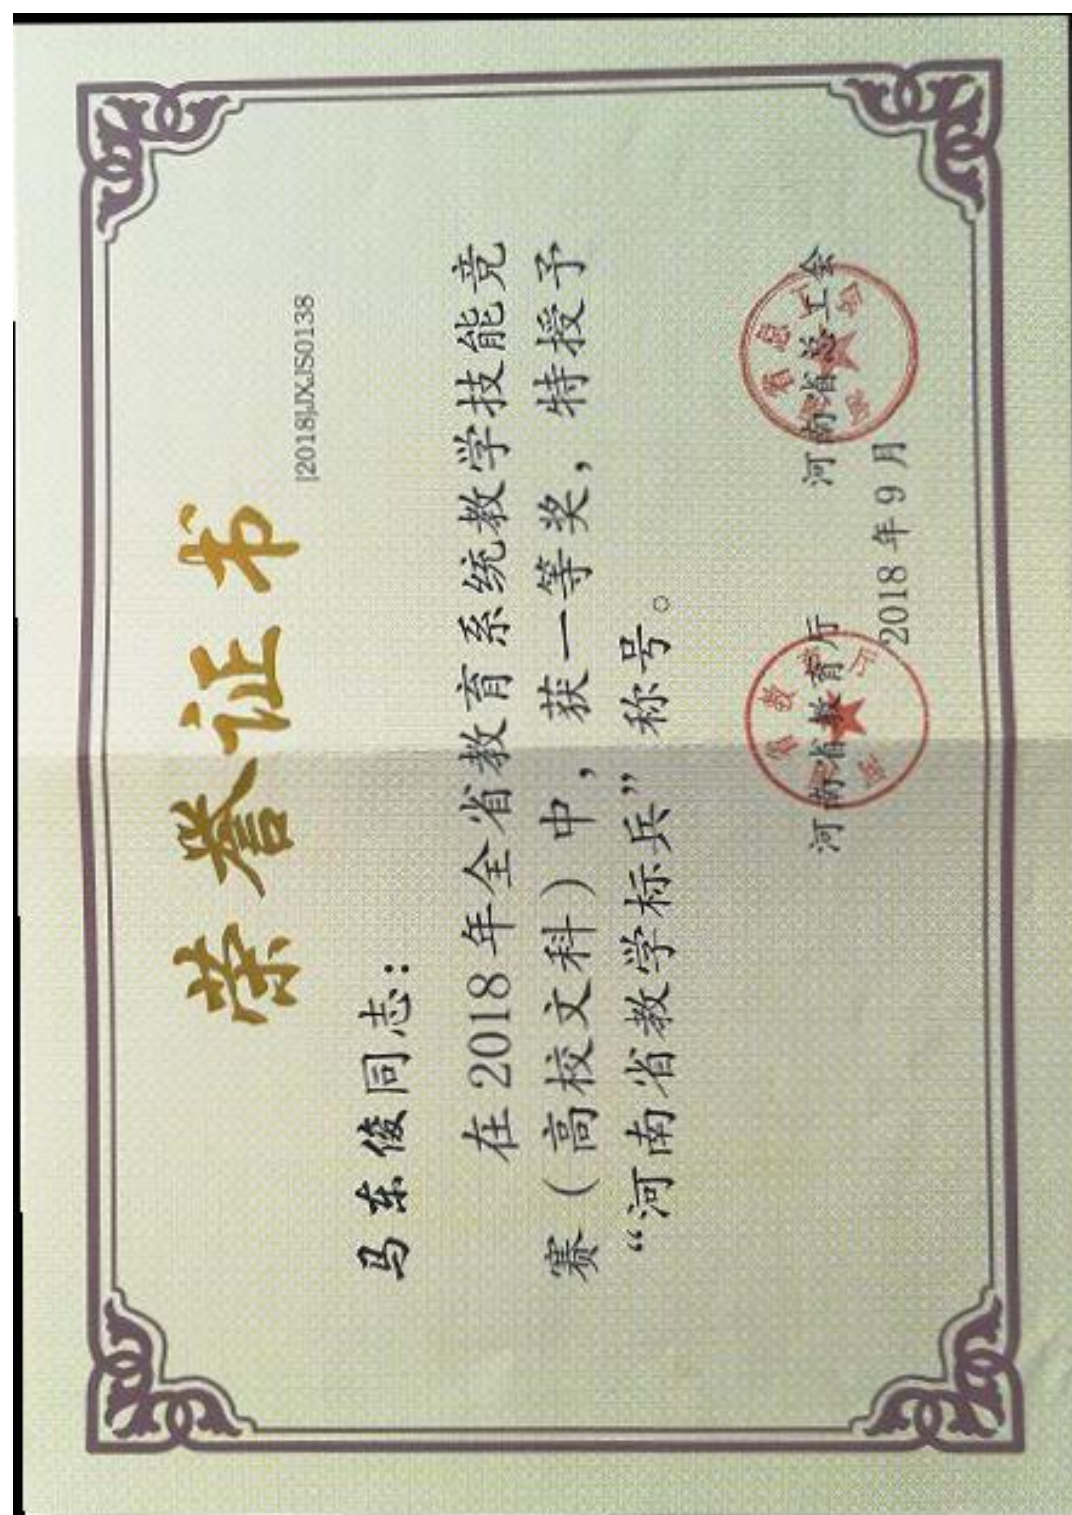 荣誉证书
[2018]JXJS0138
马东俊同志：
在2018年全省教育系统教学技能竞
赛（高校文科）中，获一等奖，特授予
“河南省教学标兵”称号。
河南省教育厅 河南省总工会
2018年9月
河南省教育厅
河南省总工会